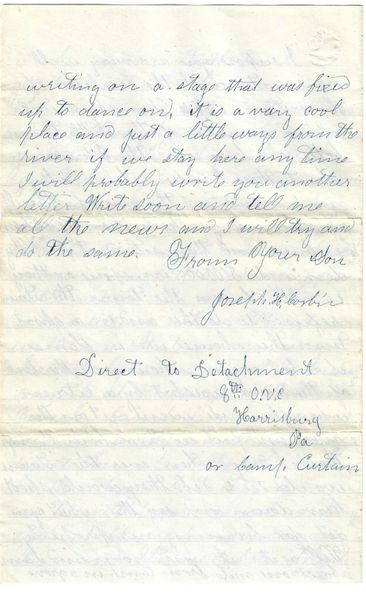 writing on a stage that was fixed
up to dance on, it is a vary cool
place and just a little ways from the
river if we stay here any time
I will probably write you another
letter Write soon and tell me
all the news and I will try and
do the same. From Your Son
Joseph H. Corbin
Direct to Detachment
8th O.V.C
Harrisburg
Pa
or Camp. Curtain